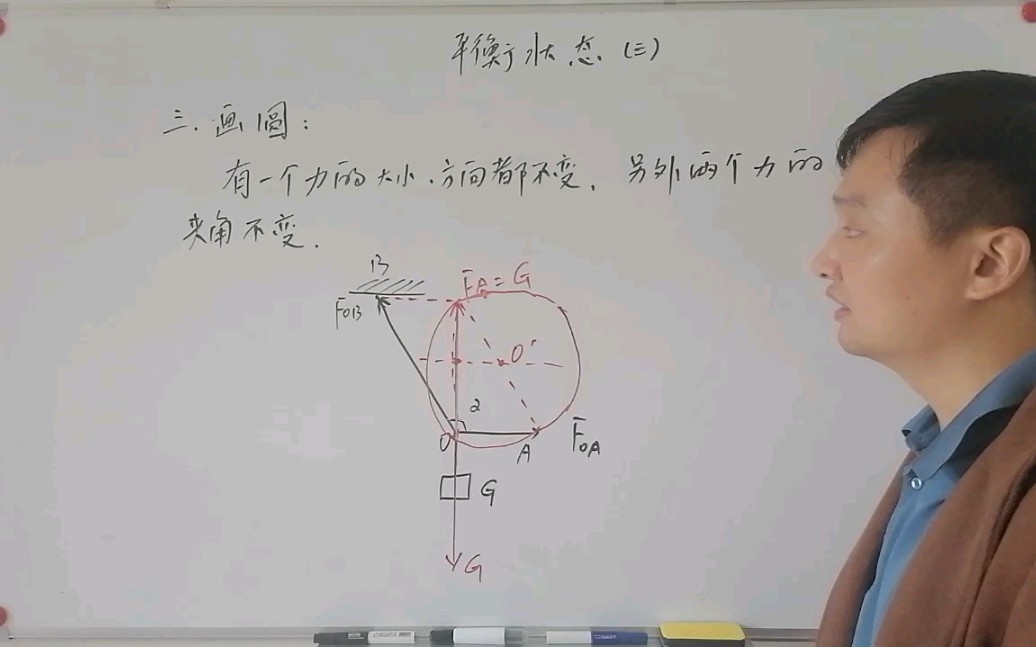 平衡状态(三)
三.画圆:
有一个力的大小.方向都不变.另外两个力的
夹角不变.
B
F合=G
FOB
O'
α
O
A
FOA
G
G